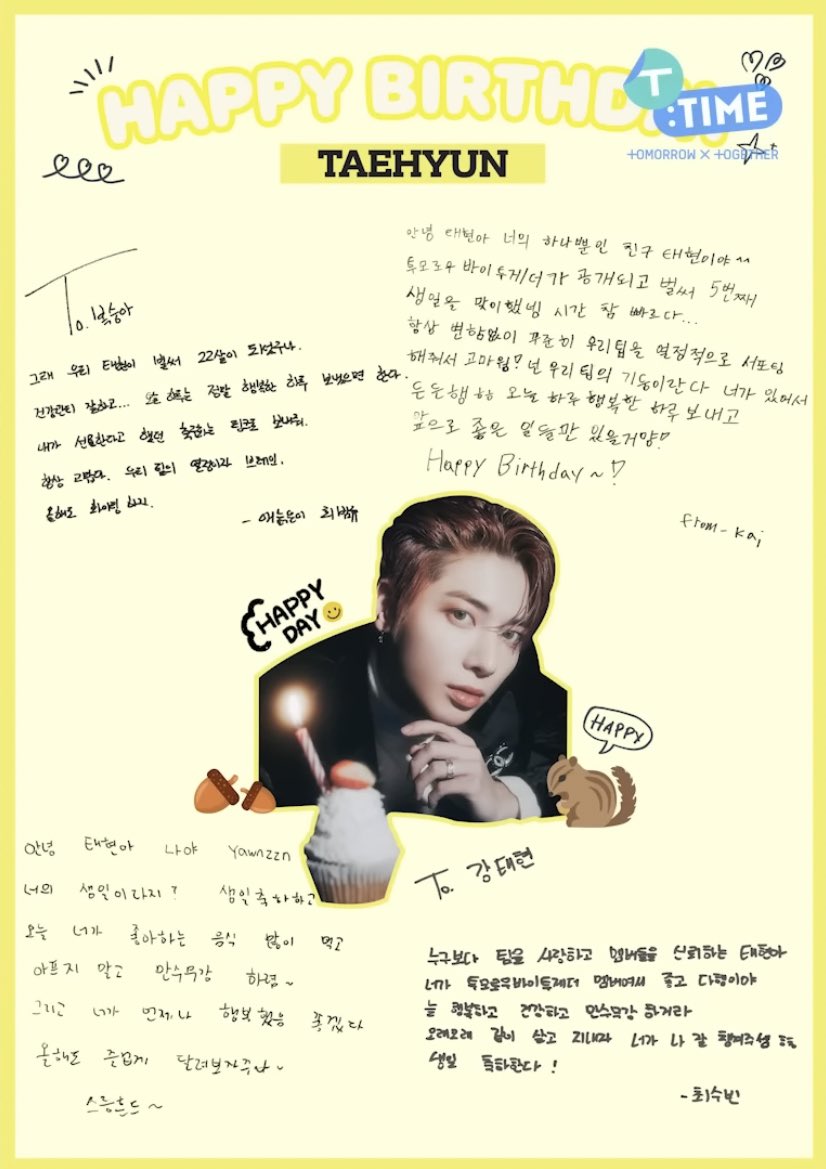 HAPPY BIRTHDAY
T:TIME
TOMORROW X TOGETHER
TAEHYUN
To.
그래 우리 태현이 벌써 22살이 되었구나.
건강관리 잘하고... 오늘 하루는 정말 행복한 하루 보냈으면 한다.
내가 선물한다고 했던 축구화는 핑크로 보내줘.
항상 고맙다. 우리 팀의 열정이자 브레인.
올해도 화이팅 하자.
안녕 태현아 너의 하나뿐인 친구 태현이야^^
투모로우바이투게더가 공개되고 벌써 5번째
생일을 맞이했넹 시간 참 빠르다...
항상 변함없이 꾸준히 우리팀을 열정적으로 서포팅
해줘서 고마웡? 넌 우리 팀의 기둥이란다 너가 있어서
든든행ㅎㅎ 오늘 하루 행복한 하루 보내고
앞으로 좋은 일들만 있을거얌!
Happy Birthday~!
from-Kai
HAPPY
DAY
HAPPY
안녕 태현아 나야 Yawnzzn
너의 생일이라지? 생일축하하고
오늘 너가 좋아하는 음식 많이 먹고
아프지 말고 만수무강 하렴~
그리고 너가 언제나 행복했음 좋겠다
올해도 즐겁게 달려보자꾸나~
To. 강태현
누구보다 팀을 사랑하고 멤버들을 신뢰하는 태현아
너가 투모로우바이투게더 멤버여서 좋고 다행이야
늘 행복하고 건강하고 만수무강 하거라
오래오래 같이 살고 지내자 너가 나 잘 챙겨주셈 ㅎㅎ
생일 축하한다!
-최수빈